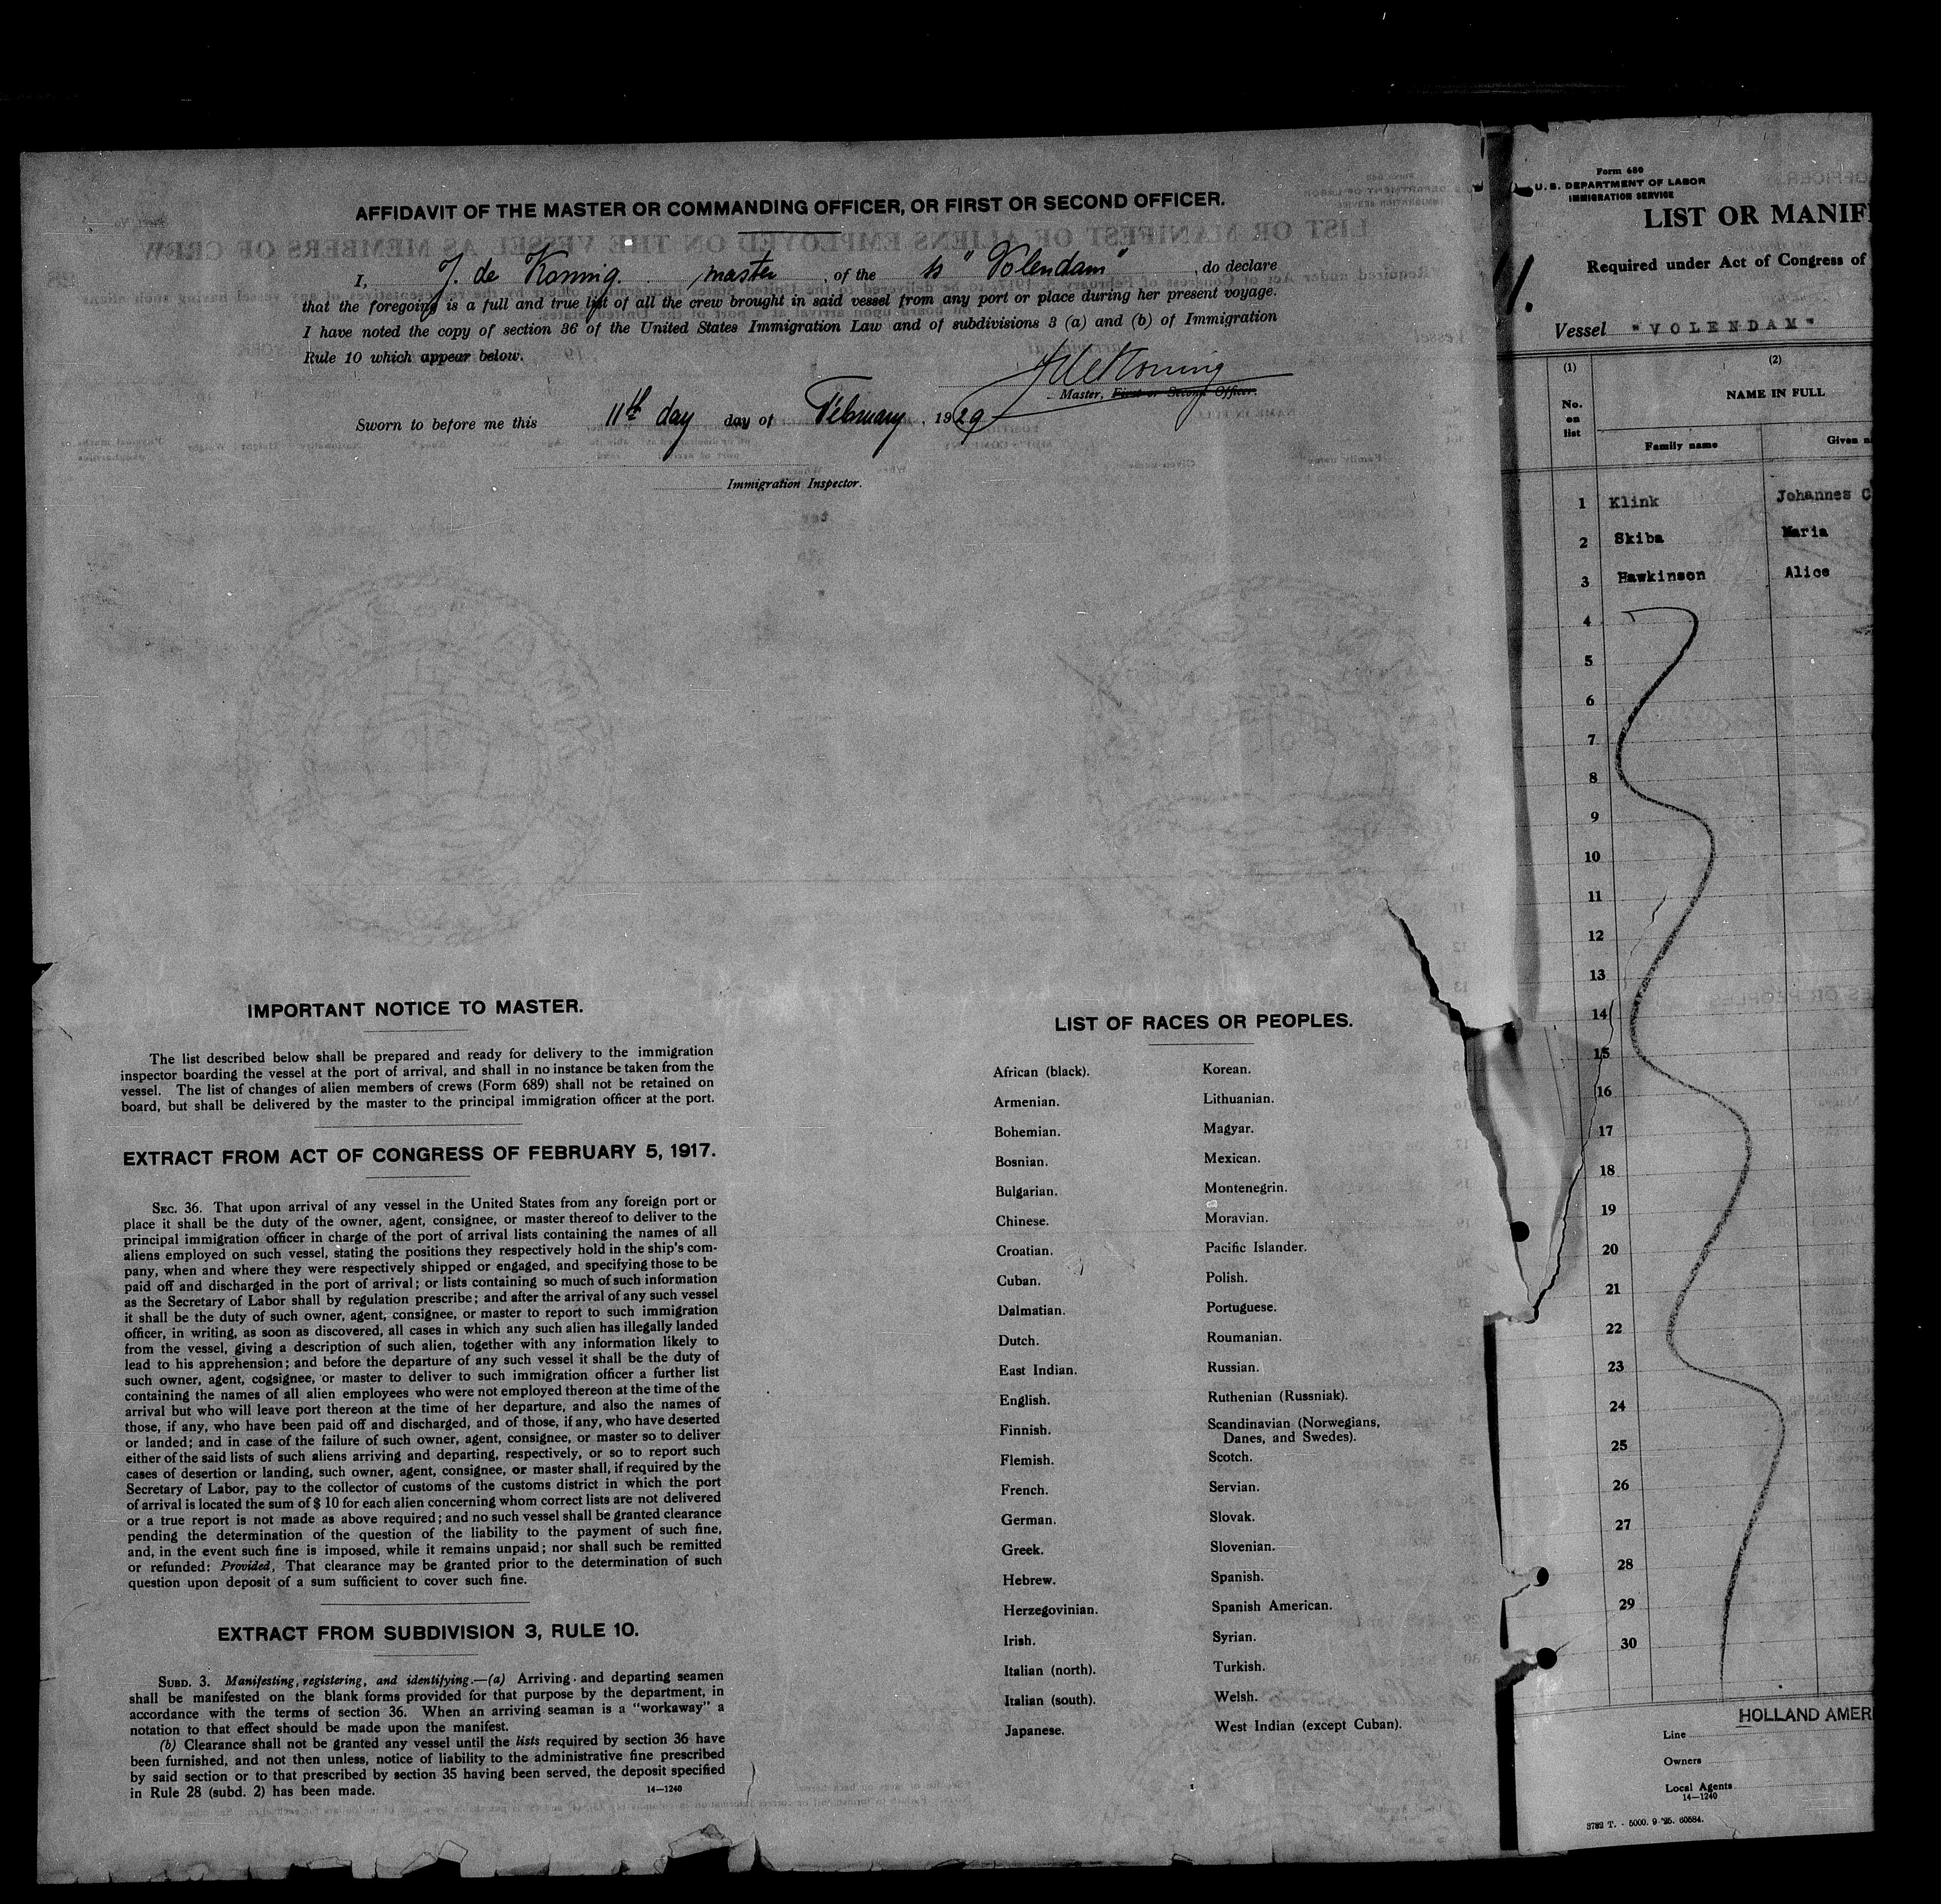 AFFIDAVIT OF THE MASTER OR COMMANDING OFFICER, OR FIRST OR SECOND OFFICER.
I, J. de Koning. master, of the ss "Volendam", do declare
that the foregoing is a full and true list of all the crew brought in said vessel from any port or place during her present voyage.
I have noted the copy of section 36 of the United States Immigration Law and of subdivisions 3 (a) and (b) of Immigration
Rule 10 which appear below.
JdeKoning
Master, First or Second Officer.
Sworn to before me this 11th day day of February, 1929
Immigration Inspector.
IMPORTANT NOTICE TO MASTER.
The list described below shall be prepared and ready for delivery to the immigration
inspector boarding the vessel at the port of arrival, and shall in no instance be taken from the
vessel. The list of changes of alien members of crews (Form 689) shall not be retained on
board, but shall be delivered by the master to the principal immigration officer at the port.
EXTRACT FROM ACT OF CONGRESS OF FEBRUARY 5, 1917.
SEC. 36. That upon arrival of any vessel in the United States from any foreign port or
place it shall be the duty of the owner, agent, consignee, or master thereof to deliver to the
principal immigration officer in charge of the port of arrival lists containing the names of all
aliens employed on such vessel, stating the positions they respectively hold in the ship's com-
pany, when and where they were respectively shipped or engaged, and specifying those to be
paid off and discharged in the port of arrival; or lists containing so much of such information
as the Secretary of Labor shall by regulation prescribe; and after the arrival of any such vessel
it shall be the duty of such owner, agent, consignee, or master to report to such immigration
officer, in writing, as soon as discovered, all cases in which any such alien has illegally landed
from the vessel, giving a description of such alien, together with any information likely to
lead to his apprehension; and before the departure of any such vessel it shall be the duty of
such owner, agent, cogsignee, or master to deliver to such immigration officer a further list
containing the names of all alien employees who were not employed thereon at the time of the
arrival but who will leave port thereon at the time of her departure, and also the names of
those, if any, who have been paid off and discharged, and of those, if any, who have deserted
or landed; and in case of the failure of such owner, agent, consignee, or master so to deliver
either of the said lists of such aliens arriving and departing, respectively, or so to report such
cases of desertion or landing, such owner, agent, consignee, or master shall, if required by the
Secretary of Labor, pay to the collector of customs of the customs district in which the port
of arrival is located the sum of $ 10 for each alien concerning whom correct lists are not delivered
or a true report is not made as above required; and no such vessel shall be granted clearance
pending the determination of the question of the liability to the payment of such fine,
and, in the event such fine is imposed, while it remains unpaid; nor shall such be remitted
or refunded: Provided, That clearance may be granted prior to the determination of such
question upon deposit of a sum sufficient to cover such fine.
EXTRACT FROM SUBDIVISION 3, RULE 10.
SUBD. 3. Manifesting, registering, and identifying.—(a) Arriving and departing seamen
shall be manifested on the blank forms provided for that purpose by the department, in
accordance with the terms of section 36. When an arriving seaman is a "workaway" a
notation to that effect should be made upon the manifest.
(b) Clearance shall not be granted any vessel until the lists required by section 36 have
been furnished, and not then unless, notice of liability to the administrative fine prescribed
by said section or to that prescribed by section 35 having been served, the deposit specified
in Rule 28 (subd. 2) has been made. 14—1240
LIST OF RACES OR PEOPLES.
African (black). Korean.
Armenian. Lithuanian.
Bohemian. Magyar.
Bosnian. Mexican.
Bulgarian. Montenegrin.
Chinese. Moravian.
Croatian. Pacific Islander.
Cuban. Polish.
Dalmatian. Portuguese.
Dutch. Roumanian.
East Indian. Russian.
English. Ruthenian (Russniak).
Finnish. Scandinavian (Norwegians,
Danes, and Swedes).
Flemish. Scotch.
French. Servian.
German. Slovak.
Greek. Slovenian.
Hebrew. Spanish.
Herzegovinian. Spanish American.
Irish. Syrian.
Italian (north). Turkish.
Italian (south). Welsh.
Japanese. West Indian (except Cuban).
Form 680
U. S. DEPARTMENT OF LABOR
IMMIGRATION SERVICE
LIST OR MANIF
Required under Act of Congress of
Vessel "VOLENDAM"
(1) (2)
No. on list
NAME IN FULL
Family name Given n
1 Klink Johannes C
2 Skiba Maria
3 Hawkinson Alice
4
5
6
7
8
9
10
11
12
13
14
15
16
17
18
19
20
21
22
23
24
25
26
27
28
29
30
HOLLAND AMER
Line
Owners
Local Agents
14—1240
3782 T. - 5000. 9-'25. 60584.